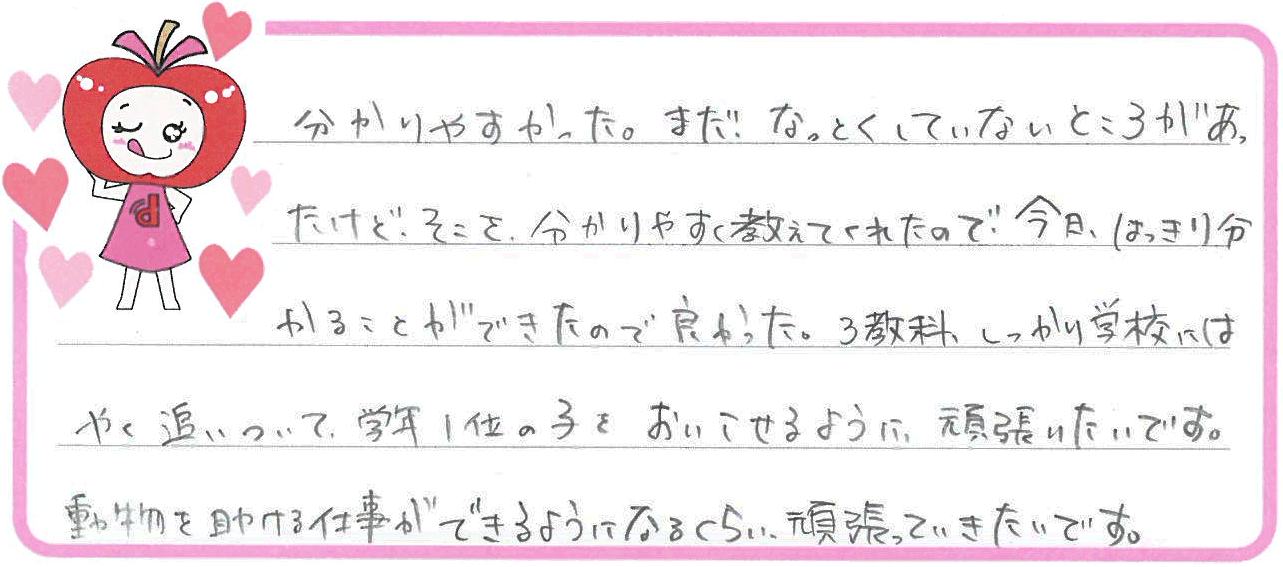 分かりやすかった。まだ、なっとくしていないところがあっ
たけど、そこを、分かりやすく教えてくれたので、今日、はっきり分
かることができたので良かった。3教科、しっかり学校には
やく追いついて、学年1位の子をおいこせるように、頑張りたいです。
動物を助ける仕事ができるようになるくらい、頑張っていきたいです。